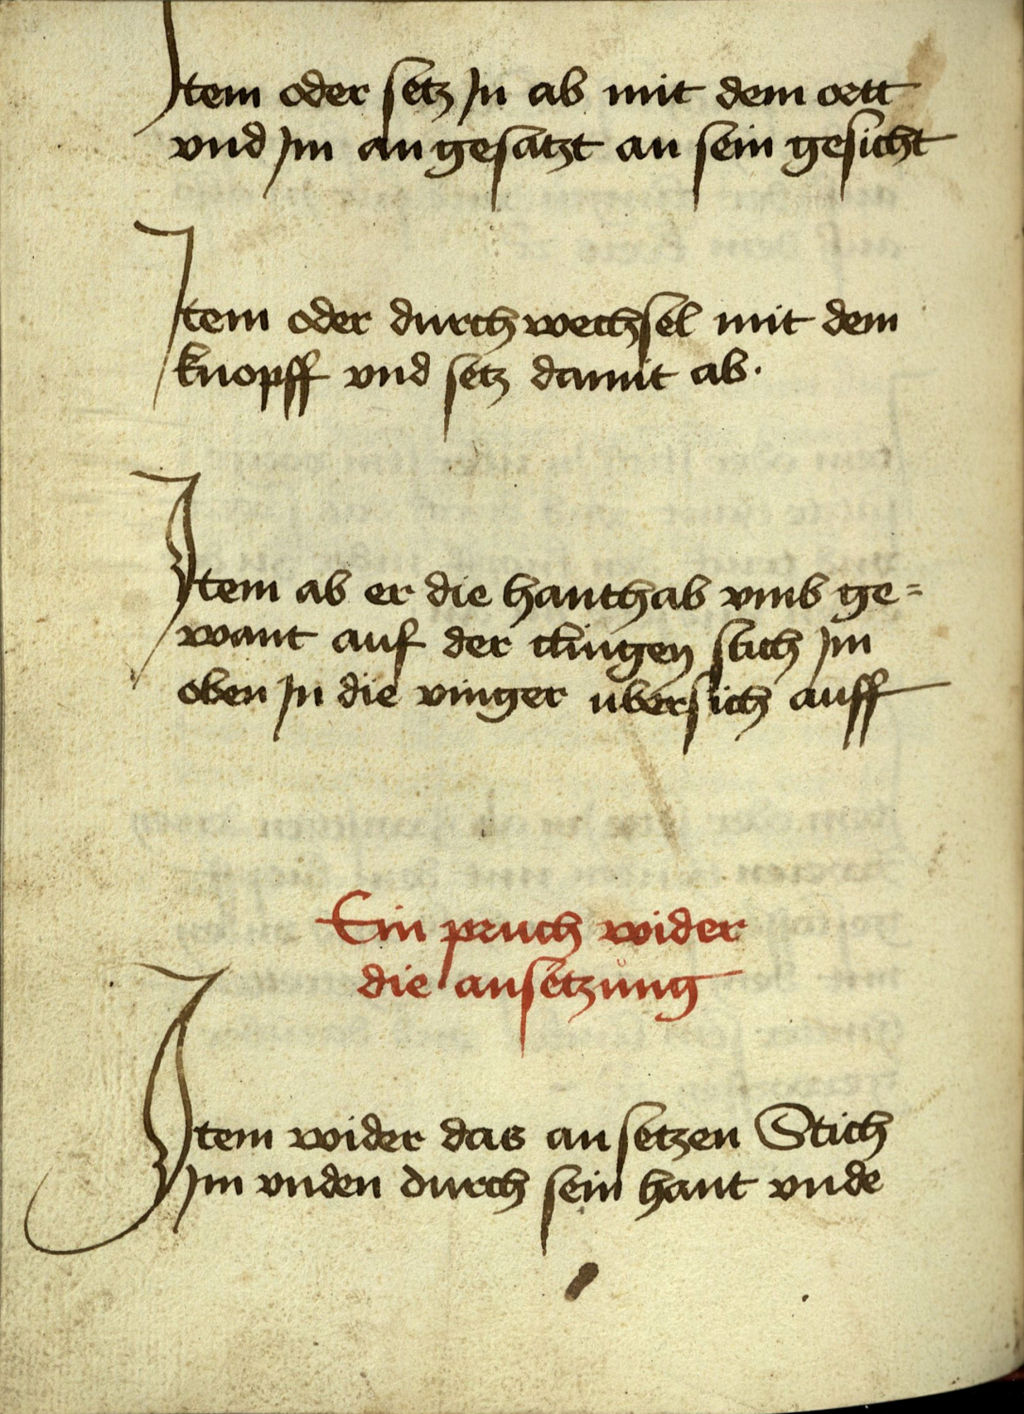 Item oder setz Jn ab mit dem ortt
vnd Jm an gesatzt an sein gesicht
Item oder durch wechsel mit dem
knopff vnd setz damit ab.
Item ab er die hanthab vmb ge=
want auf der clingen stich Jm
oben Jn die vinger ubersich auff
Ein pruch wider
die ansetzung
Item wider das an setzen Stich
Jm vnden durch sein hant vnde